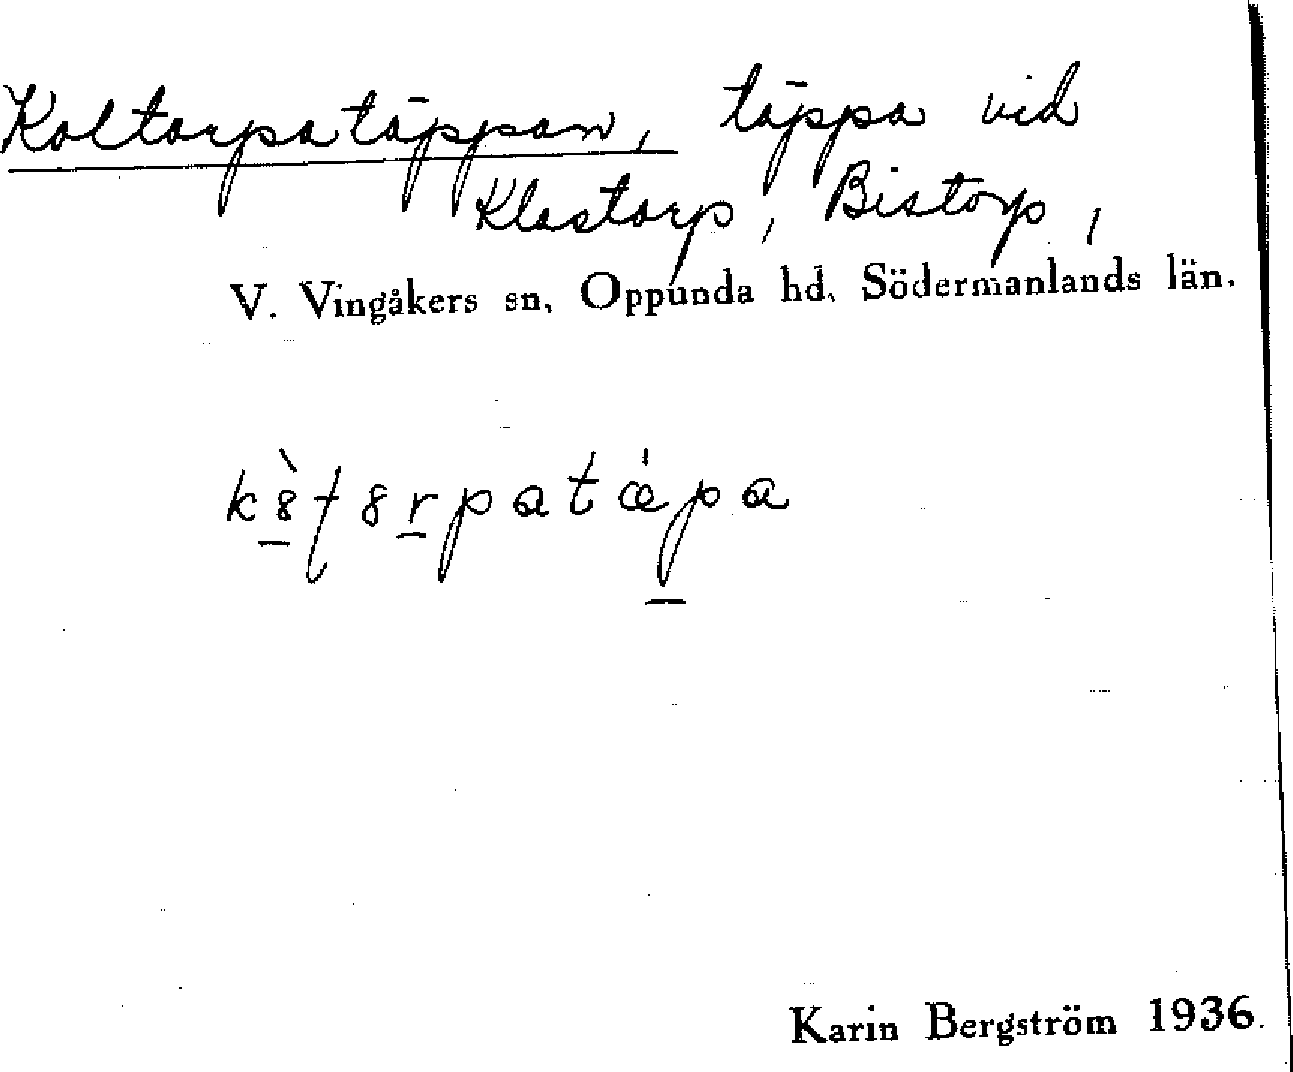 Koltorpatäppan, täppa vid
Klastorp, Bistorp,
V. Vingåkers sn, Oppunda hd, Södermanlands län.
Karin Bergström 1936.